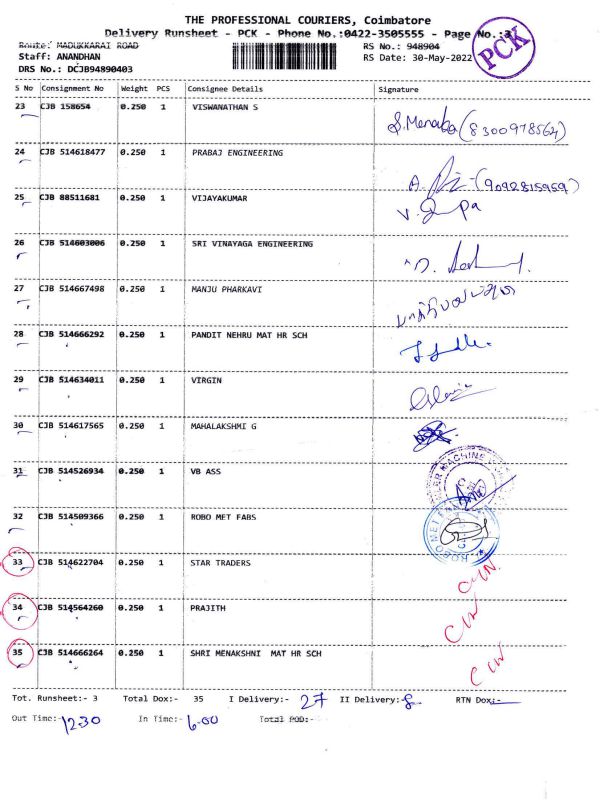 THE PROFESSIONAL COURIERS, Coimbatore
Delivery Runsheet - PCK - Phone No.:0422-3505555 - Page No.:3
PCK
Route: MADUKKARAI ROAD
RS No.: 948904
Staff: ANANDHAN
RS Date: 30-May-2022
DRS No.: DCJB94890403
S No Consignment No Weight PCS Consignee Details Signature
23 CJB 158654 0.250 1 VISWANATHAN S
S. Menaka (8300978564)
24 CJB 514618477 0.250 1 PRABAJ ENGINEERING
(9092815959)
25 CJB 88511681 0.250 1 VIJAYAKUMAR
26 CJB 514603006 0.250 1 SRI VINAYAGA ENGINEERING
27 CJB 514667498 0.250 1 MANJU PHARKAVI
28 CJB 514666292 0.250 1 PANDIT NEHRU MAT HR SCH
29 CJB 514634011 0.250 1 VIRGIN
30 CJB 514617565 0.250 1 MAHALAKSHMI G
31 CJB 514526934 0.250 1 VB ASS
32 CJB 514509366 0.250 1 ROBO MET FABS
33 CJB 514622704 0.250 1 STAR TRADERS
34 CJB 514564260 0.250 1 PRAJITH
35 CJB 514666264 0.250 1 SHRI MENAKSHNI MAT HR SCH
Tot. Runsheet:- 3 Total Dox:- 35 I Delivery:- 27 II Delivery:- 8 RTN Dox:-
Out Time:- 12.30 In Time:- 6.00 Total POD:-